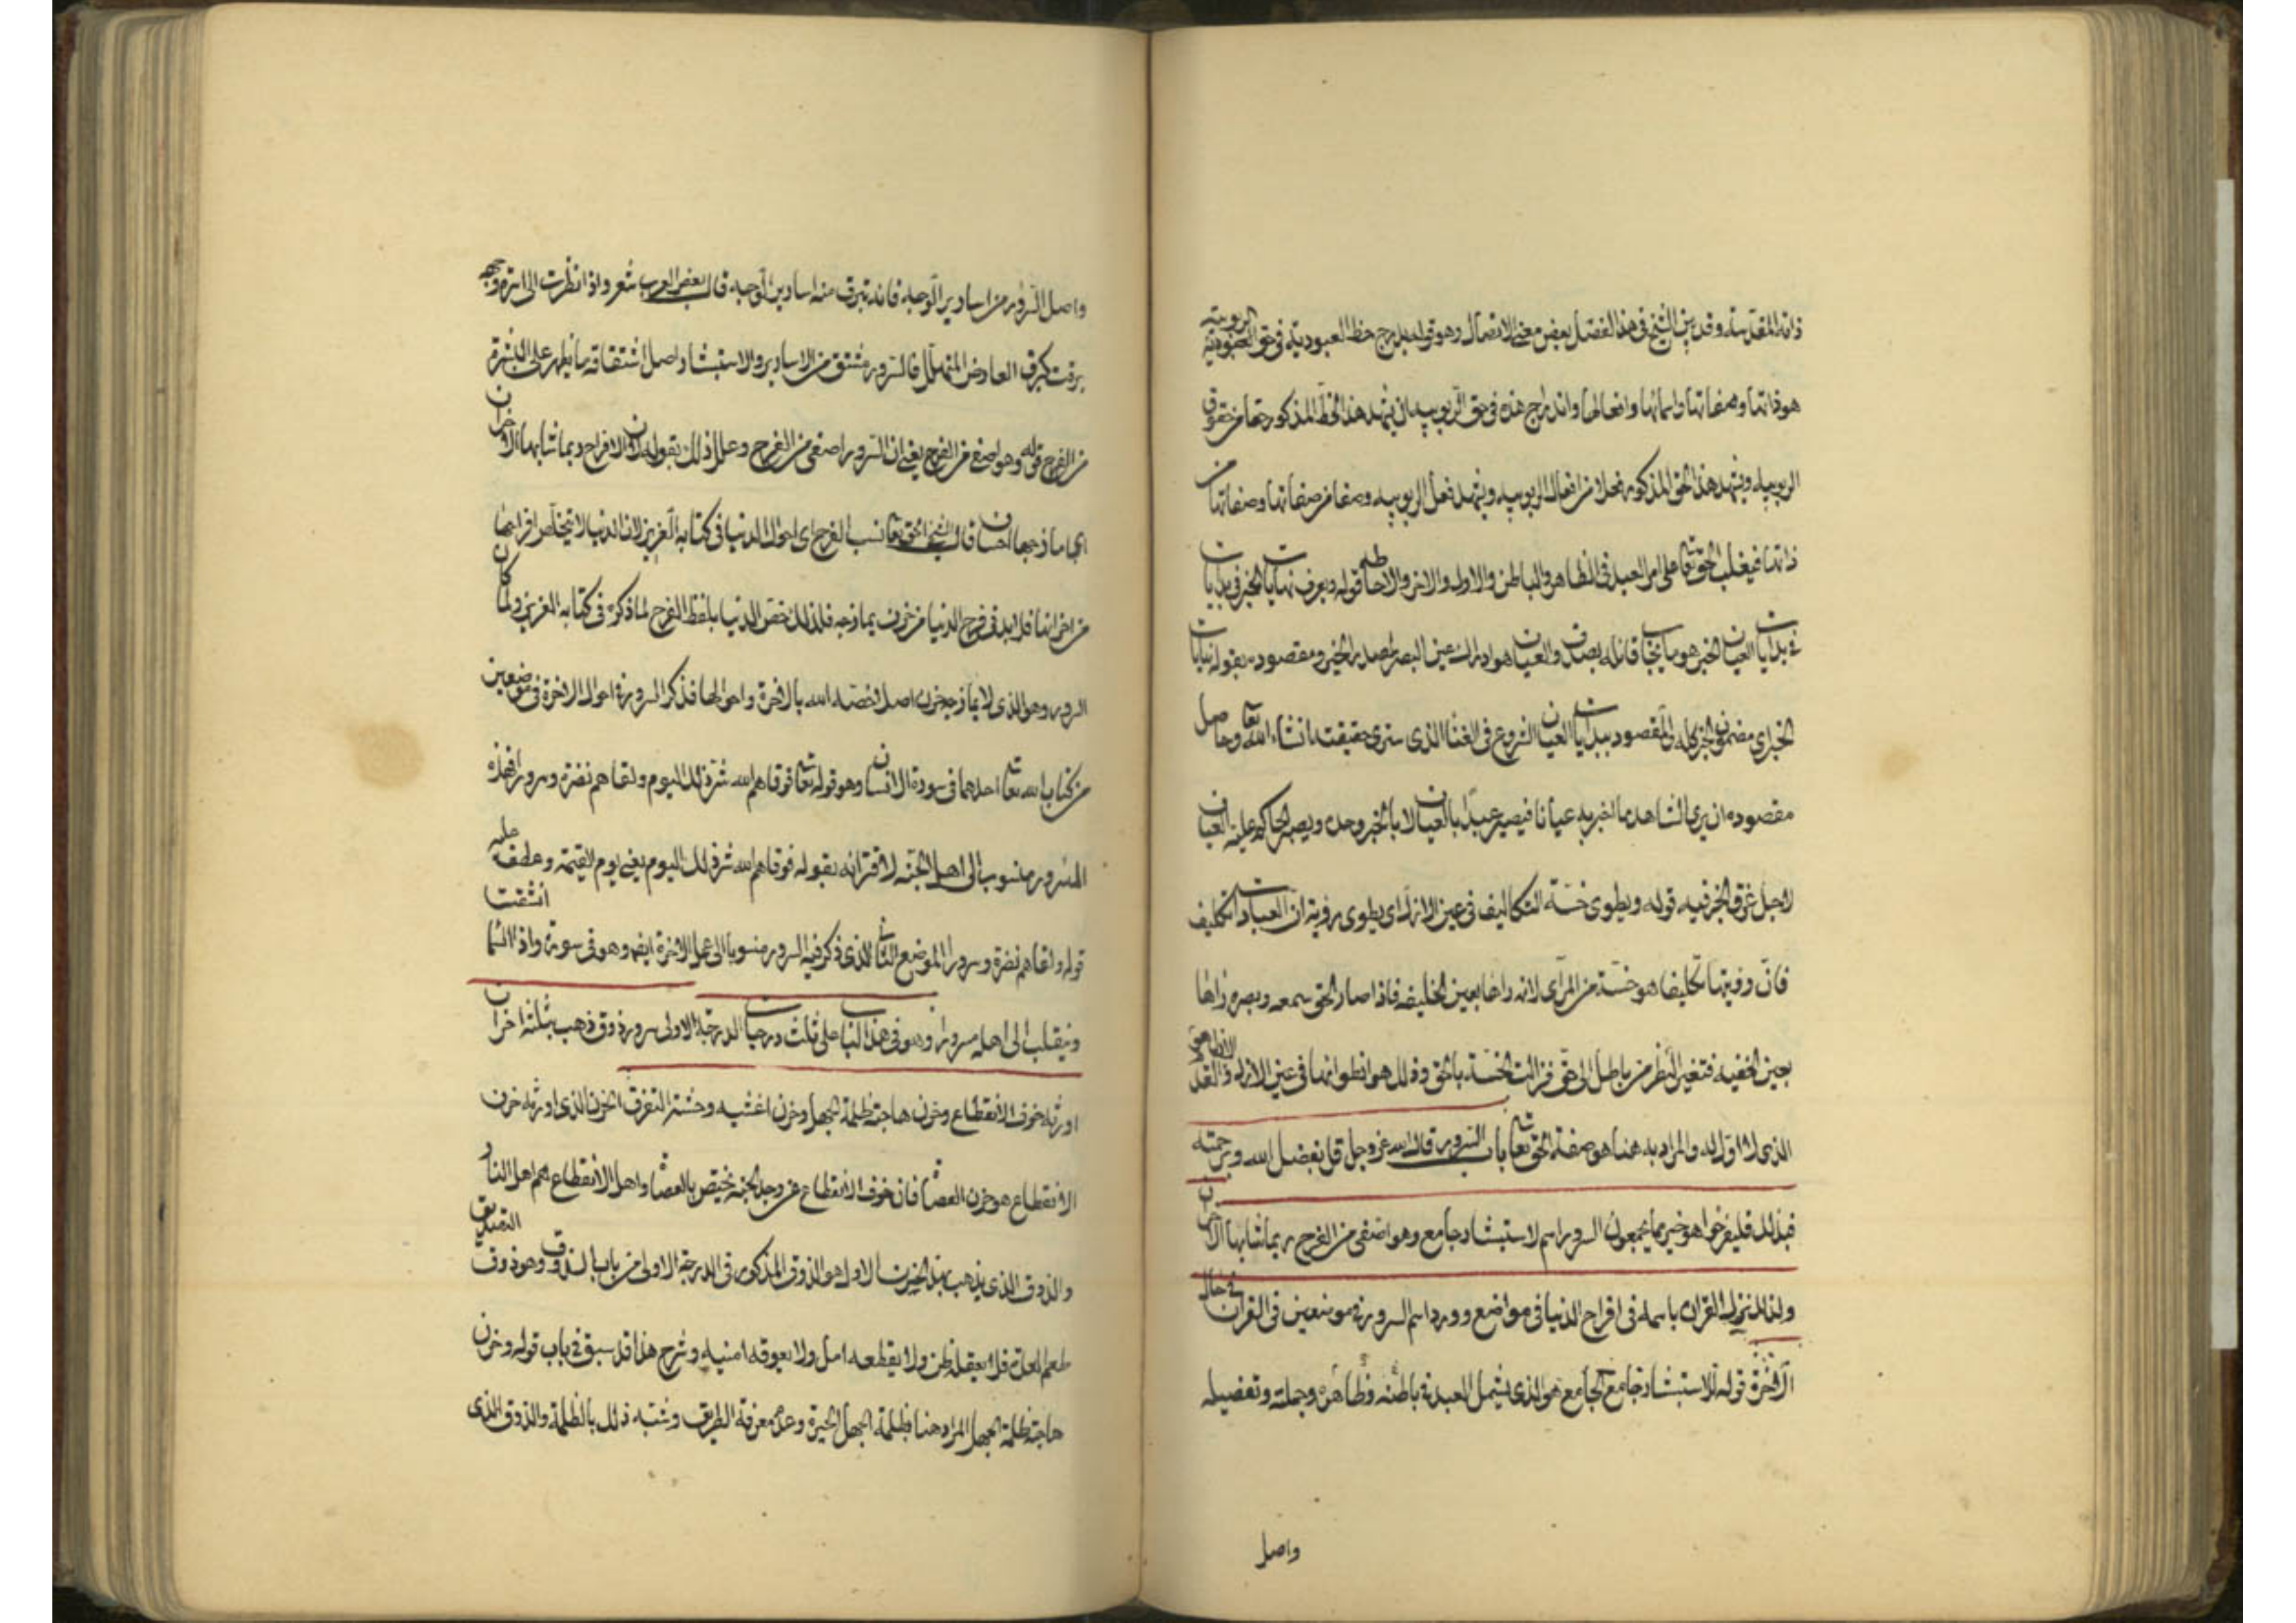 ذاته المقدسة وقد بين الشيخ في هذا الفصل بعض معنى الاتصال وهو قوله يدرج حظ العبودية في حق الربوبية العبودية
هو ذاتها وصفاتها واسمائها وافعالها واندراج هذه في حق الربوبية ان يشهد هذا الحظ المذكور حقا من حقوق
الربوبية ويشهد هذا الحق المذكور فعلا من افعال الربوبية ويشهد فعل الربوبية وصفا من صفاتها وصفاتها من
ذاتها فيغلب الحق تعا على امر العبد في الظاهر والباطن والاول والاخر والاحاطه قوله ويعرف نهايات الخبر في بدايات
في بدايات العيان الخبر هو ما يخبا قائله بصدق والعيان هو ادراك عين البصر لمصدر الخبر ومقصوده بقوله نهايات
الخبر اي مضمون الخبر كله والمقصود ببدايات العيان الشروع في الفنا الذي سترى حقيقته ان شاء الله تعا وحاصل
مقصوده ان يرى الشاهد ما اخبر به عيانا فيصير عبدا بالعيان لا بالخبر وحده ويصير الحاكم عليه العيان
لاجل غرق الخبر فيه قوله ويطوي خسة التكاليف في عين الازل اي يطوي رؤية ان العبادات تكليف
فان رؤيتها تكليفا هو خسة من الرآى لانه راها بعين الخليقة فاذا صار الحق سمعه وبصره راها
بعين الحقيقة فتغير النظر من باطل الى حق فزالت الخسة بالحق وذلك هو انطوائها في عين الازل الازل هو القدم
الذي لا اول له والمراد به هنا هو صفة الحق تعا باب السرور قال الله عز وجل قل بفضل الله وبرحمته
فبذلك فليفرحوا هو خير مما يجمعون السرور اسم لاستبشار جامع وهو اصفى من الفرح ربما شابها الاحزان
ولذلك نزل القرآن باسمه في افراح الدنيا في مواضع وورد اسم السرور في موضعين في القرآن في حال
الآخرة قوله الاستبشار جامع الجامع هو الذي يشمل العبد في باطنه وظاهره وجملته وتفصيله
واصل
واصل السرور من اسارير الوجه فانه تبرق منه اسارير الوجه قال بعض العرب شعر واذا نظرت الى اسرة وجهه
برقت كبرق العارض المتهلل فالسرور مشتق من الاسارير والاستبشار اصل اشتقاقه ما يظهر على البشرة
من الفرح قوله وهو اصفى من الفرح يعني ان السرور اصفى من الفرح وعلل ذلك بقوله لان الافراح ربما شابها الاحزان
اي مازجها احسان قال الشيخ الحق تعا نسب الفرح اى احوال الدنيا في كتابه العزيز لان الدنيا لا تتخلص افراحها
من احزانها فلا بد في فرح الدنيا من حزن يمازجه فلذلك خص الدنيا بلفظ الفرح لما ذكره في كتابه العزيز ولما كان
السرور وهو الذي لا يمازجه حزن اصلا خصه الله بالاخرة واحوالها فذكر السرور في احوال الاخرة في موضعين
من كتاب الله تعا احدهما في سورة الانسان وهو قوله تعا فوقاهم الله شر ذلك اليوم ولقاهم نضرة وسرورا فهذه
السرور منسوب الى اهل الجنة لاقترانه بقوله فوقاهم الله شر ذلك اليوم يعني يوم القيمة وعطف عليه
قوله ولقاهم نضرة وسرورا الموضع الثاني الذي ذكر فيه السرور منسوبا الى عمل الاخرة ايضا وهو في سورة واذا السما انشقت
وينقلب الى اهله مسرورا وهو في هذا الباب على ثلث درجات الدرجة الاولى سرور ذوق ذهب بثلثة احزان
اورثه خوف الانقطاع وحزن هاجته ظلمة الجهل وحزن اغشيه وحشة التفرق الحزن الذي اورثه خوف
الانقطاع هو حزن العصاة فان خوف الانقطاع عن وجد الجنة يختص بالعصاة واهل الانقطاع هم اهل النار
والذوق الذي يذهب بهذا الحزن الاول هو الذوق المذكور في الدرجة الاولى من باب الذوق وهو ذوق التصديق
طعم العدة فلا يعقله ظن ولا يقطعه امل ولا يعوقه امنية وشرح هذا قد سبق في باب قوله وحزن
هاجته ظلمة الجهل المراد هنا بظلمة الجهل الحيرة وعدم معرفة الطريق وشبه ذلك بالظلمة والذوق الذي